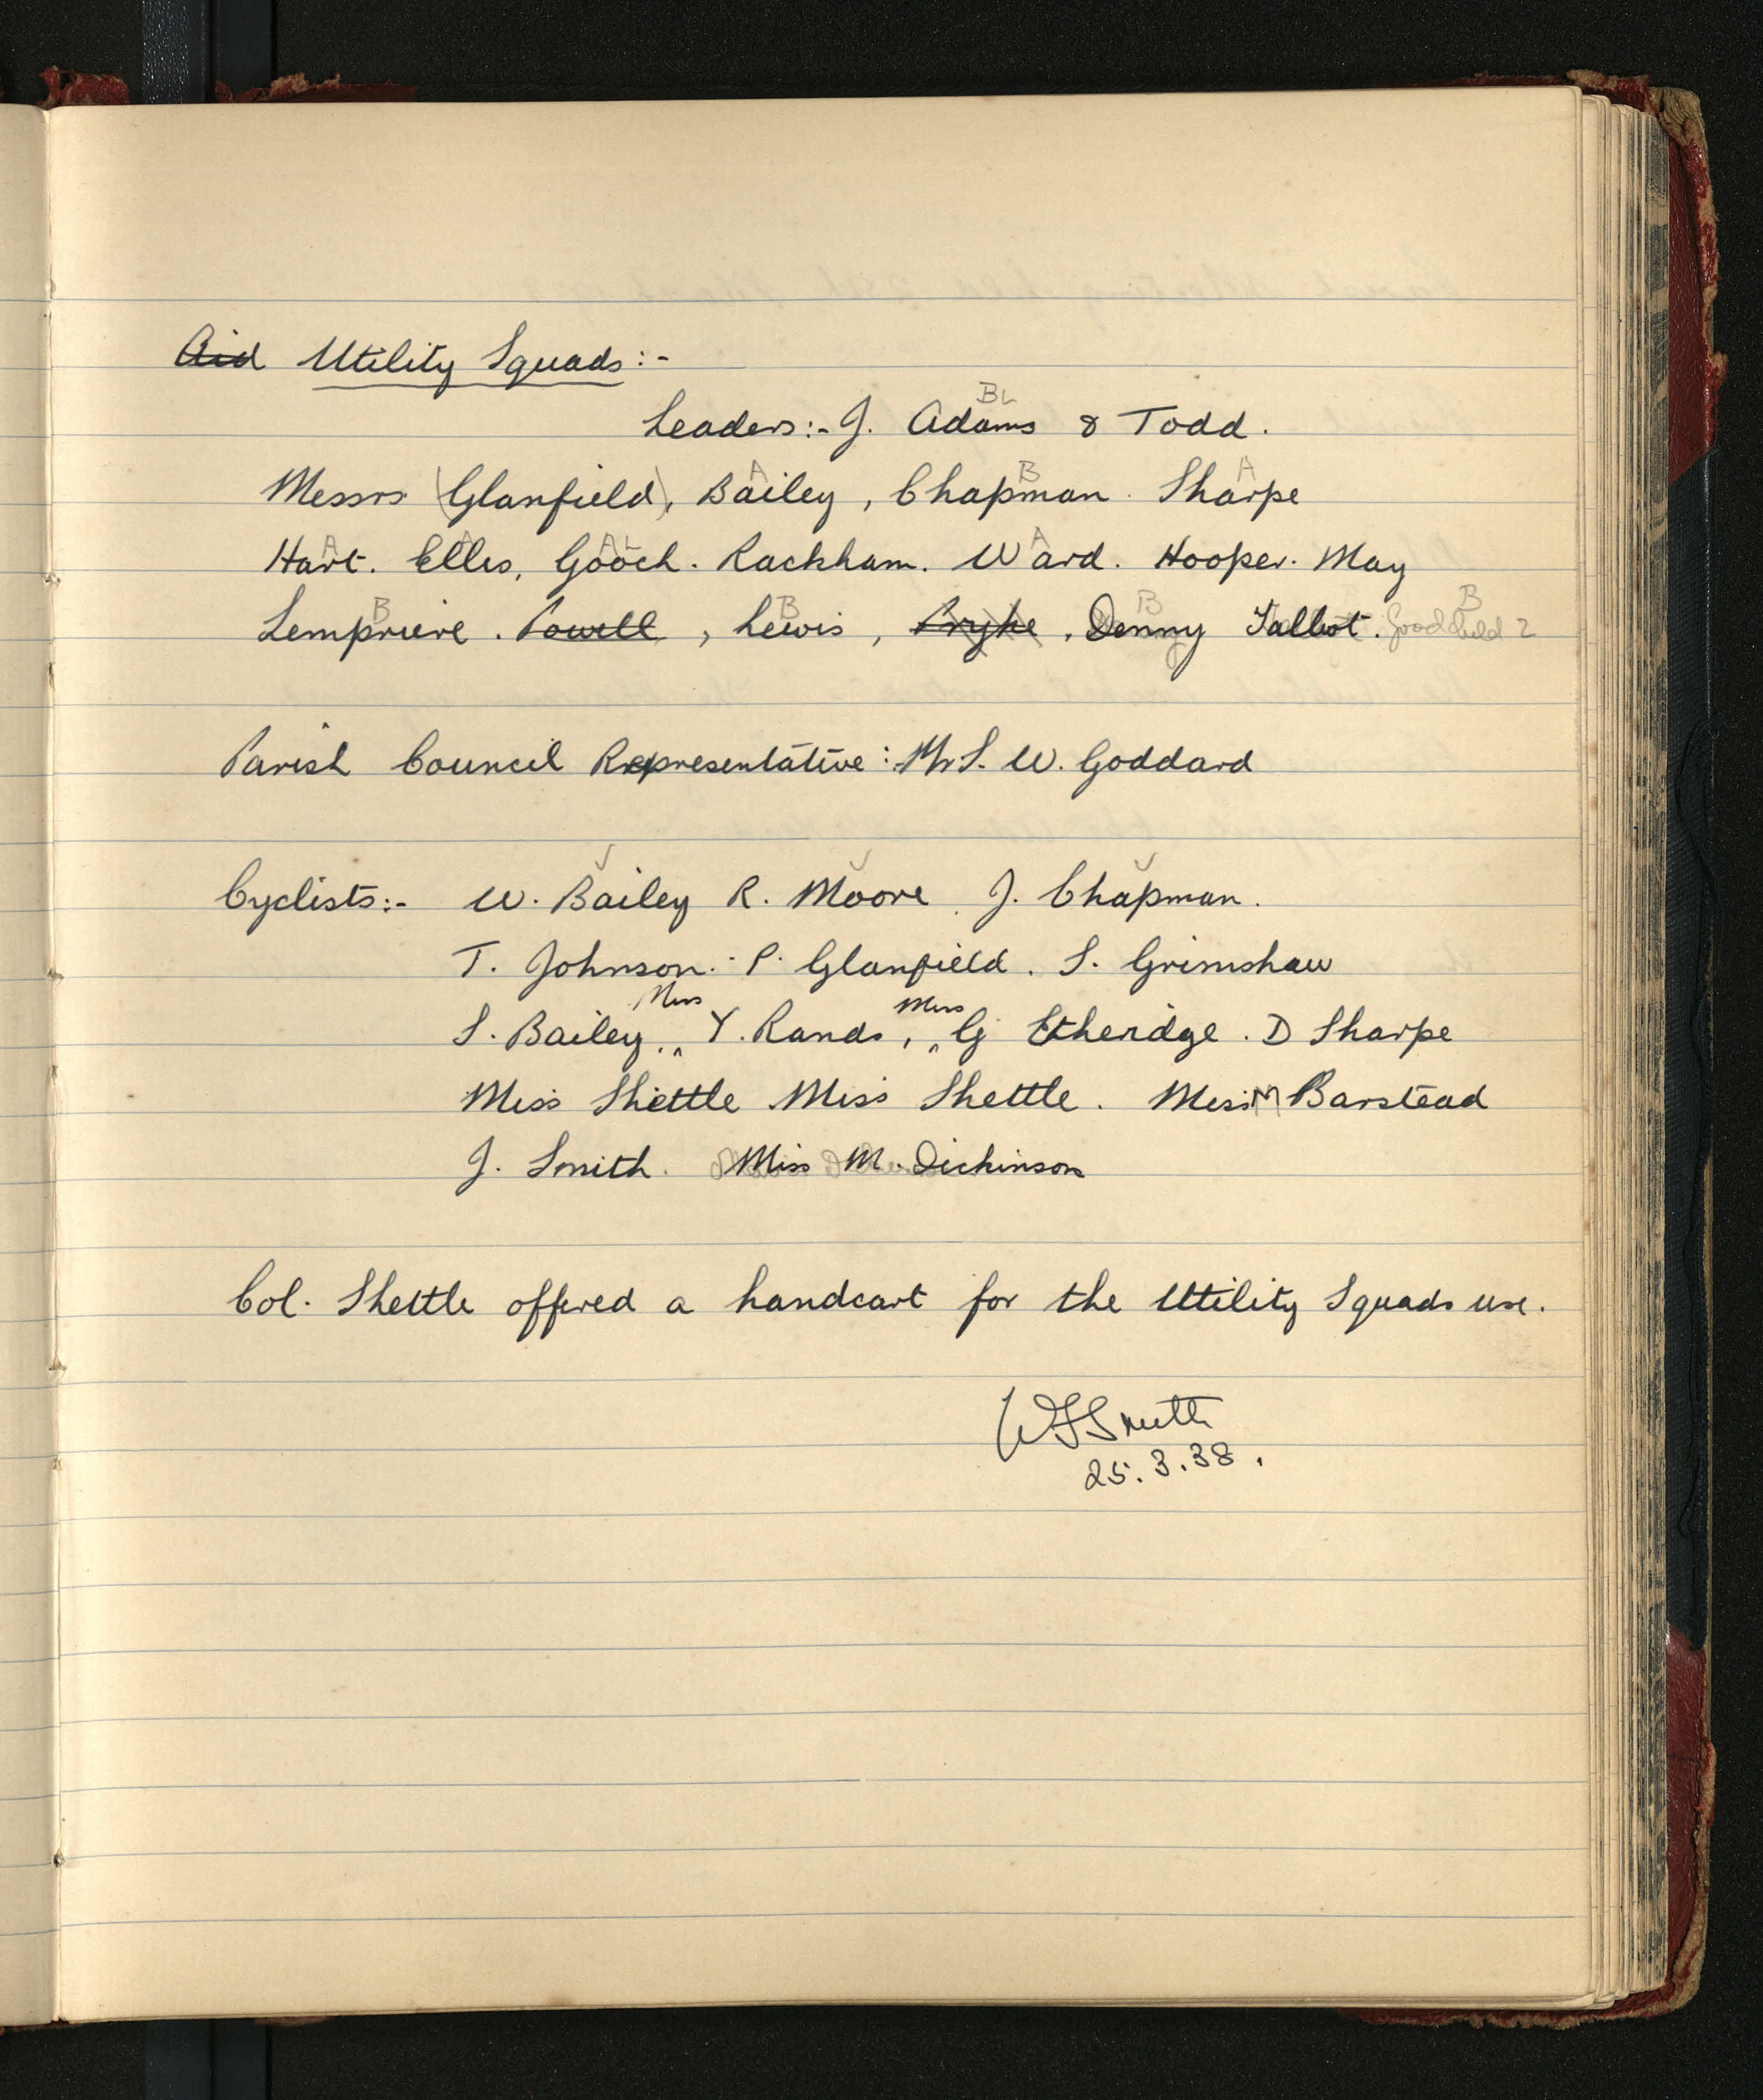 Aid Utility Squads:-
BL
Leaders:- J. Adams & Todd.
A B A
Messrs (Glanfield), Bailey, Chapman. Sharpe
A A A L A
Hart. Elles, Gooch. Rackham. Ward. Hooper. May
B B B B
Lempriere. Powell, Lewis, Pryke, Denny Talbot. Goodchild 2
Parish Council Representative: Mr S. W. Goddard
Cyclists:- W. Bailey R. Moore. J. Chapman.
T. Johnson. P. Glanfield. S. Grimshaw
Miss Miss
S. Bailey, Y. Rands, G Etheridge. D Sharpe
Miss Shettle Miss Shettle. Miss M Barstead
J. Smith. Miss M. Dickinson
Col. Shettle offered a handcart for the Utility Squads use.
WFSmith
25.3.38.